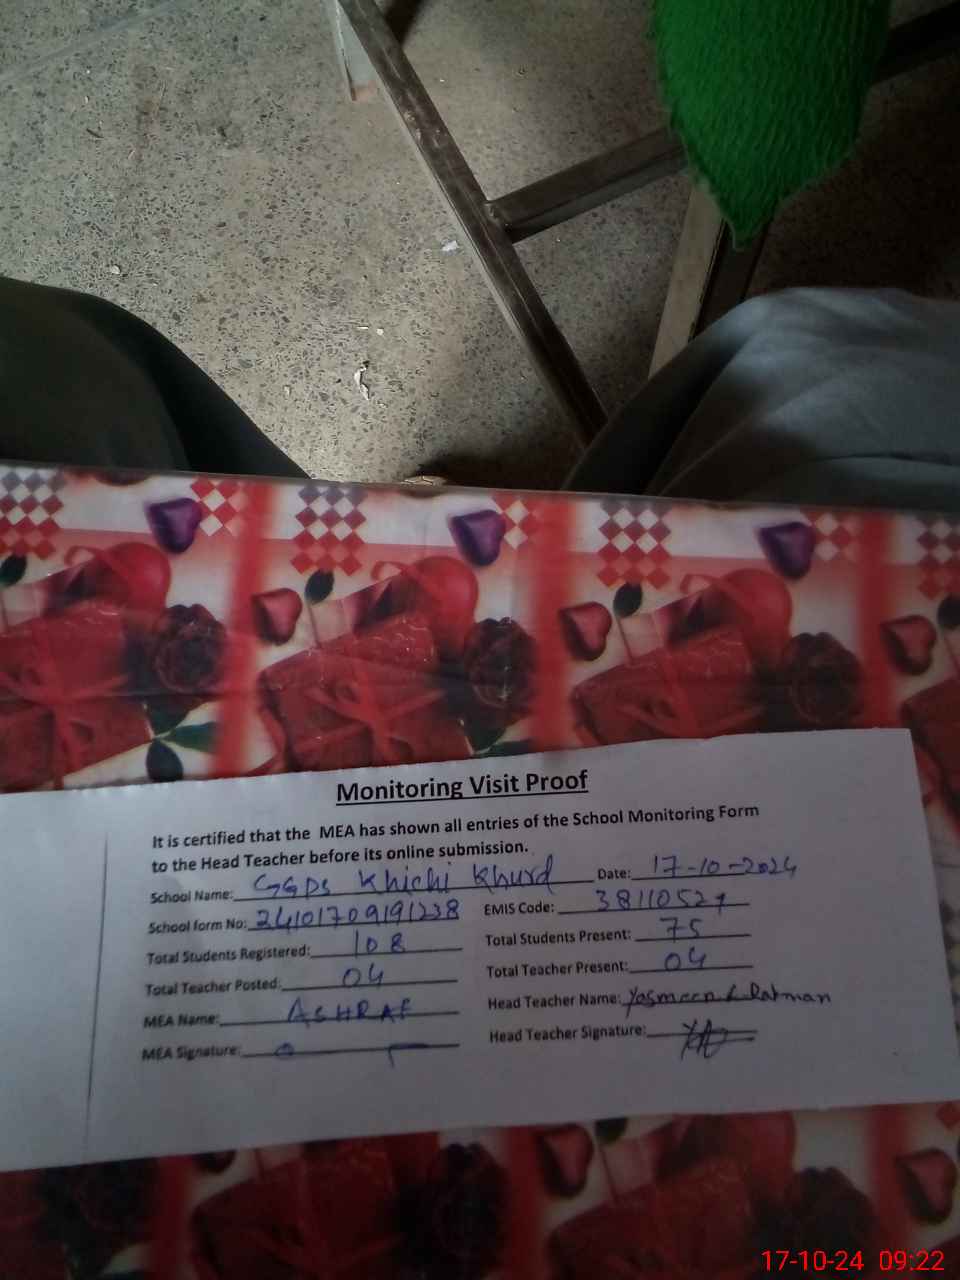 Monitoring Visit Proof
It is certified that the MEA has shown all entries of the School Monitoring Form
to the Head Teacher before its online submission.
School Name: GGPS Khichi Khurd Date: 17-10-2024
School form No: 34101709191238 EMIS Code: 38110527
Total Students Registered: 108 Total Students Present: 75
Total Teacher Posted: 04 Total Teacher Present: 04
MEA Name: ASHRAF Head Teacher Name: Yasmeen
MEA Signature: Head Teacher Signature:
17-10-24 09:22